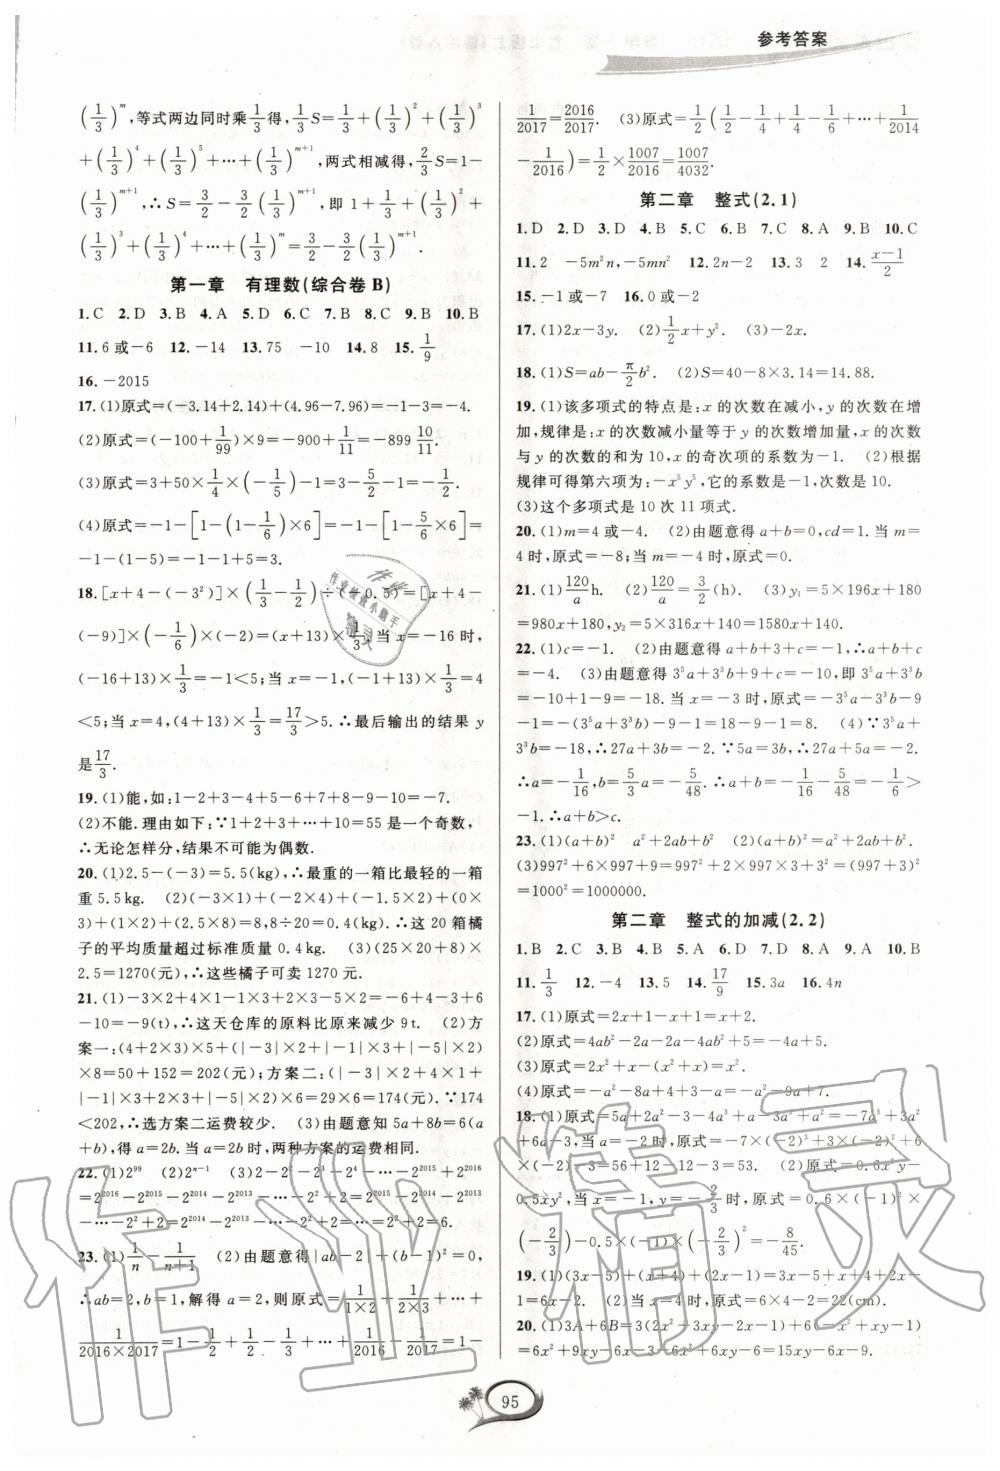 参考答案
(1/3)^m,等式两边同时乘1/3得,1/3S=1/3+(1/3)^2+(1/3)^3
+(1/3)^4+(1/3)^5+…+(1/3)^{m+1},两式相减得,2/3S=1-
(1/3)^{m+1},∴S=3/2-3/2(1/3)^{m+1},即1+1/3+(1/3)^2+
(1/3)^3+(1/3)^4+…+(1/3)^m=3/2-3/2(1/3)^{m+1}.
第一章 有理数(综合卷B)
1.C 2.D 3.B 4.A 5.D 6.C 7.B 8.C 9.B 10.B
11.6或-6 12.-14 13.75 -10 14.8 15.1/9
16.-2015
17.(1)原式=(-3.14+2.14)+(4.96-7.96)=-1-3=-4.
(2)原式=(-100+1/99)×9=-900+1/11=-899 10/11.
(3)原式=3+50×1/4×(-1/5)-1=3-5/2-1=-1/2.
(4)原式=-1-[1-(1-1/6)×6]=-1-[1-5/6×6]=
-1-(1-5)=-1+4=3.
18.[x+4-(-3²)]×(1/3-1/2)÷(+0.5)=[x+4-
(-9)]×(-1/6)×(-2)=(x+13)×1/3.当x=-16时,
(-16+13)×1/3=-1<5;当x=-1,(-1+13)×1/3=4
<5;当x=4,(4+13)×1/3=17/3>5.∴最后输出的结果y
是17/3.
19.(1)能,如:1-2+3-4+5+6+7+8-9-10=-7.
(2)不能.理由如下:∵1+2+3+…+10=55是一个奇数,
∴无论怎样分,结果不可能为偶数.
20.(1)2.5-(-3)=5.5(kg),∴最重的一箱比最轻的一箱
重5.5kg. (2)(-3×1)+(-2×4)+(-1.5×2)+(0×
3)+(1×2)+(2.5×8)=8,8÷20=0.4(kg).∴这20箱橘
子的平均质量超过标准质量0.4kg. (3)(25×20+8)×
2.5=1270(元),∴这些橘子可卖1270元.
21.(1)-3×2+4×1-1×3+2×3-5×2=-6+4-3+6
-10=-9(t),∴这天仓库的原料比原来减少9t. (2)方
案一:(4+2×3)×5+(|-3|×2+|-1|×3+|-5|×2)
×8=50+152=202(元);方案二:(|-3|×2+4×1+
|-1|×3+2×3+|-5|×2)×6=29×6=174(元).∵174
<202,∴选方案二运费较少. (3)由题意知5a+8b=6(a
+b),得a=2b.当a=2b时,两种方案的运费相同.
22.(1)2^99 (2)2^{n-1} (3)2-2²-2³-2⁴-…-2^2015+2^2016
=2^2016-2^2015-2^2014-2^2013-…-2²+2=2^2015-2^2014-2^2013
-…-2²+2=2^2014-2^2013-…-2²+2=2²+2=6.
23.(1)1/n-1/(n+1) (2)由题意得|ab-2|+(b-1)²=0,
∴ab=2,b=1,解得a=2,则原式=1/(1×2)+1/(2×3)+…+
1/(2016×2017)=1-1/2+1/2-1/3+…+1/2016-1/2017=1-
1/2017=2016/2017. (3)原式=1/2(1/2-1/4+1/4-1/6+…+1/2014
-1/2016)=1/2×1007/2016=1007/4032.
第二章 整式(2.1)
1.D 2.D 3.D 4.B 5.C 6.B 7.C 8.A 9.B 10.C
11.2 -5m²n,-5mn² 12.2n-2 13.3 2 14.(x-1)/2
15.-1或-7 16.0或-2
17.(1)2x-3y. (2)1/2x+y². (3)-2x.
18.(1)S=ab-π/2b². (2)S=40-8×3.14=14.88.
19.(1)该多项式的特点是:x的次数在减小,y的次数在增
加,规律是:x的次数减小量等于y的次数增加量,x的次数
与y的次数的和为10,x的奇次项的系数为-1. (2)根据
规律可得第六项为:-x⁵y⁵,它的系数是-1,次数是10.
(3)这个多项式是10次11项式.
20.(1)m=4或-4. (2)由题意得a+b=0,cd=1.当m=
4时,原式=-8;当m=-4时,原式=0.
21.(1)120/a h. (2)120/a=3/2(h). (3)y₁=5×196x+180
=980x+180,y₂=5×316x+140=1580x+140.
22.(1)c=-1. (2)由题意得a+b+3+c=-1.∴a+b+c
=-4. (3)由题意得3⁵a+3³b+9+c=-10,即3⁵a+3³b
=-10-9+1=-18.当x=-3时,原式=-3⁵a-3³b-9
-1=-(3⁵a+3³b)-9-1=18-9-1=8. (4)∵3⁵a+
3³b=-18,∴27a+3b=-2.∵5a=3b,∴27a+5a=-2.
∴a=-1/16,b=5/3a=-5/48.∵-1/16>-5/48=-1/6>
-1.∴a+b>c.
23.(1)(a+b)² a²+2ab+b² (2)(a+b)²=a²+2ab+b².
(3)997²+6×997+9=997²+2×997×3+3²=(997+3)²
=1000²=1000000.
第二章 整式的加减(2.2)
1.B 2.C 3.B 4.B 5.A 6.D 7.D 8.A 9.A 10.B
11.1/3 12.-4 13.5 14.17/9 15.3a 16.4n
17.(1)原式=2x+1-x+1=x+2.
(2)原式=4a-2a-2a-4ab+2=-4ab+2.
(3)原式=2x²+x-(x²+x)=x².
(4)原式=-a²-8a+4+3-a=-a²-9a+7.
18.(1)原式=5a+2a²-3-4a³+a-3a³+a²=-7a³+3a²
+6a-3,当a=-2时,原式=-7×(-2)³+3×(-2)²+6
×(-2)-3=56+12-12-3=53. (2)原式=0.6x²y-
0.5xy²,当x=-1,y=-2/3时,原式=0.6×(-1)²×
(-2/3)-0.5×(-1)×(-2/3)²=-8/45.
19.(1)(3x-5)+(x+4)+(2x-1)=3x-5+x+4+2x-
1=6x-2. (2)当x=4时,原式=6×4-2=22(cm).
20.(1)3A+6B=3(2x²+3xy-2x-1)+6(-x²+xy-
1)=6x²+9xy-6x-3-6x²+6xy-6=15xy-6x-9.
95
作业精灵
作业检查小助手
精灵